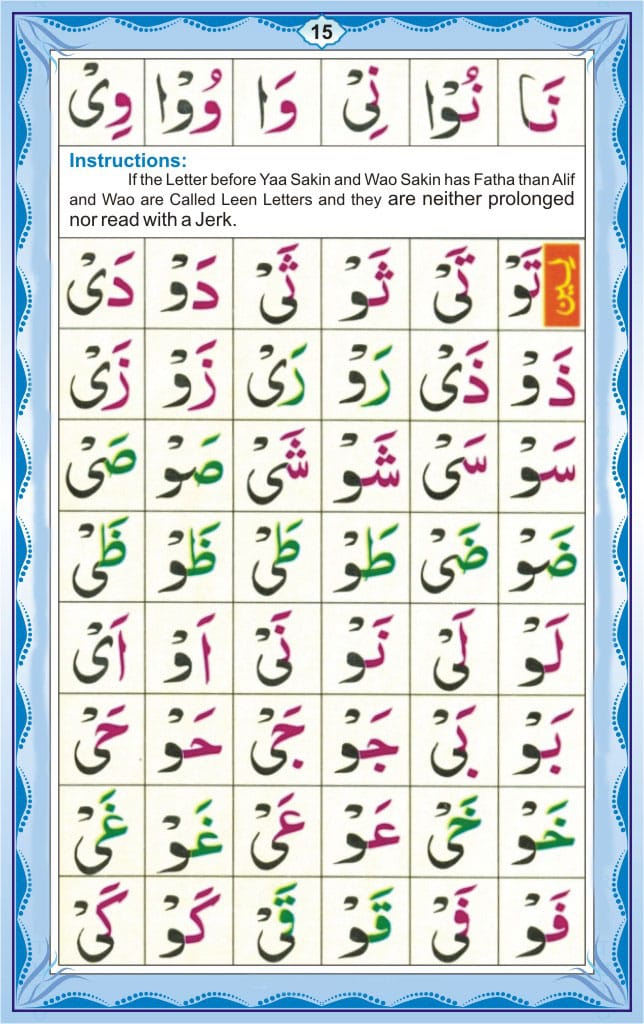 15
نَا نُوْا نِىْ وَا وُوْا وِىْ
Instructions:
If the Letter before Yaa Sakin and Wao Sakin has Fatha than Alif
and Wao are Called Leen Letters and they are neither prolonged
nor read with a Jerk.
لين
تَوْ تَىْ ثَوْ ثَىْ دَوْ دَىْ
ذَوْ ذَىْ رَوْ رَىْ زَوْ زَىْ
سَوْ سَىْ شَوْ شَىْ صَوْ صَىْ
ضَوْ ضَىْ طَوْ طَىْ ظَوْ ظَىْ
لَوْ لَىْ نَوْ نَىْ اَوْ اَىْ
بَوْ بَىْ جَوْ جَىْ حَوْ حَىْ
خَوْ خَىْ عَوْ عَىْ غَوْ غَىْ
فَوْ فَىْ قَوْ قَىْ گَوْ گَىْ